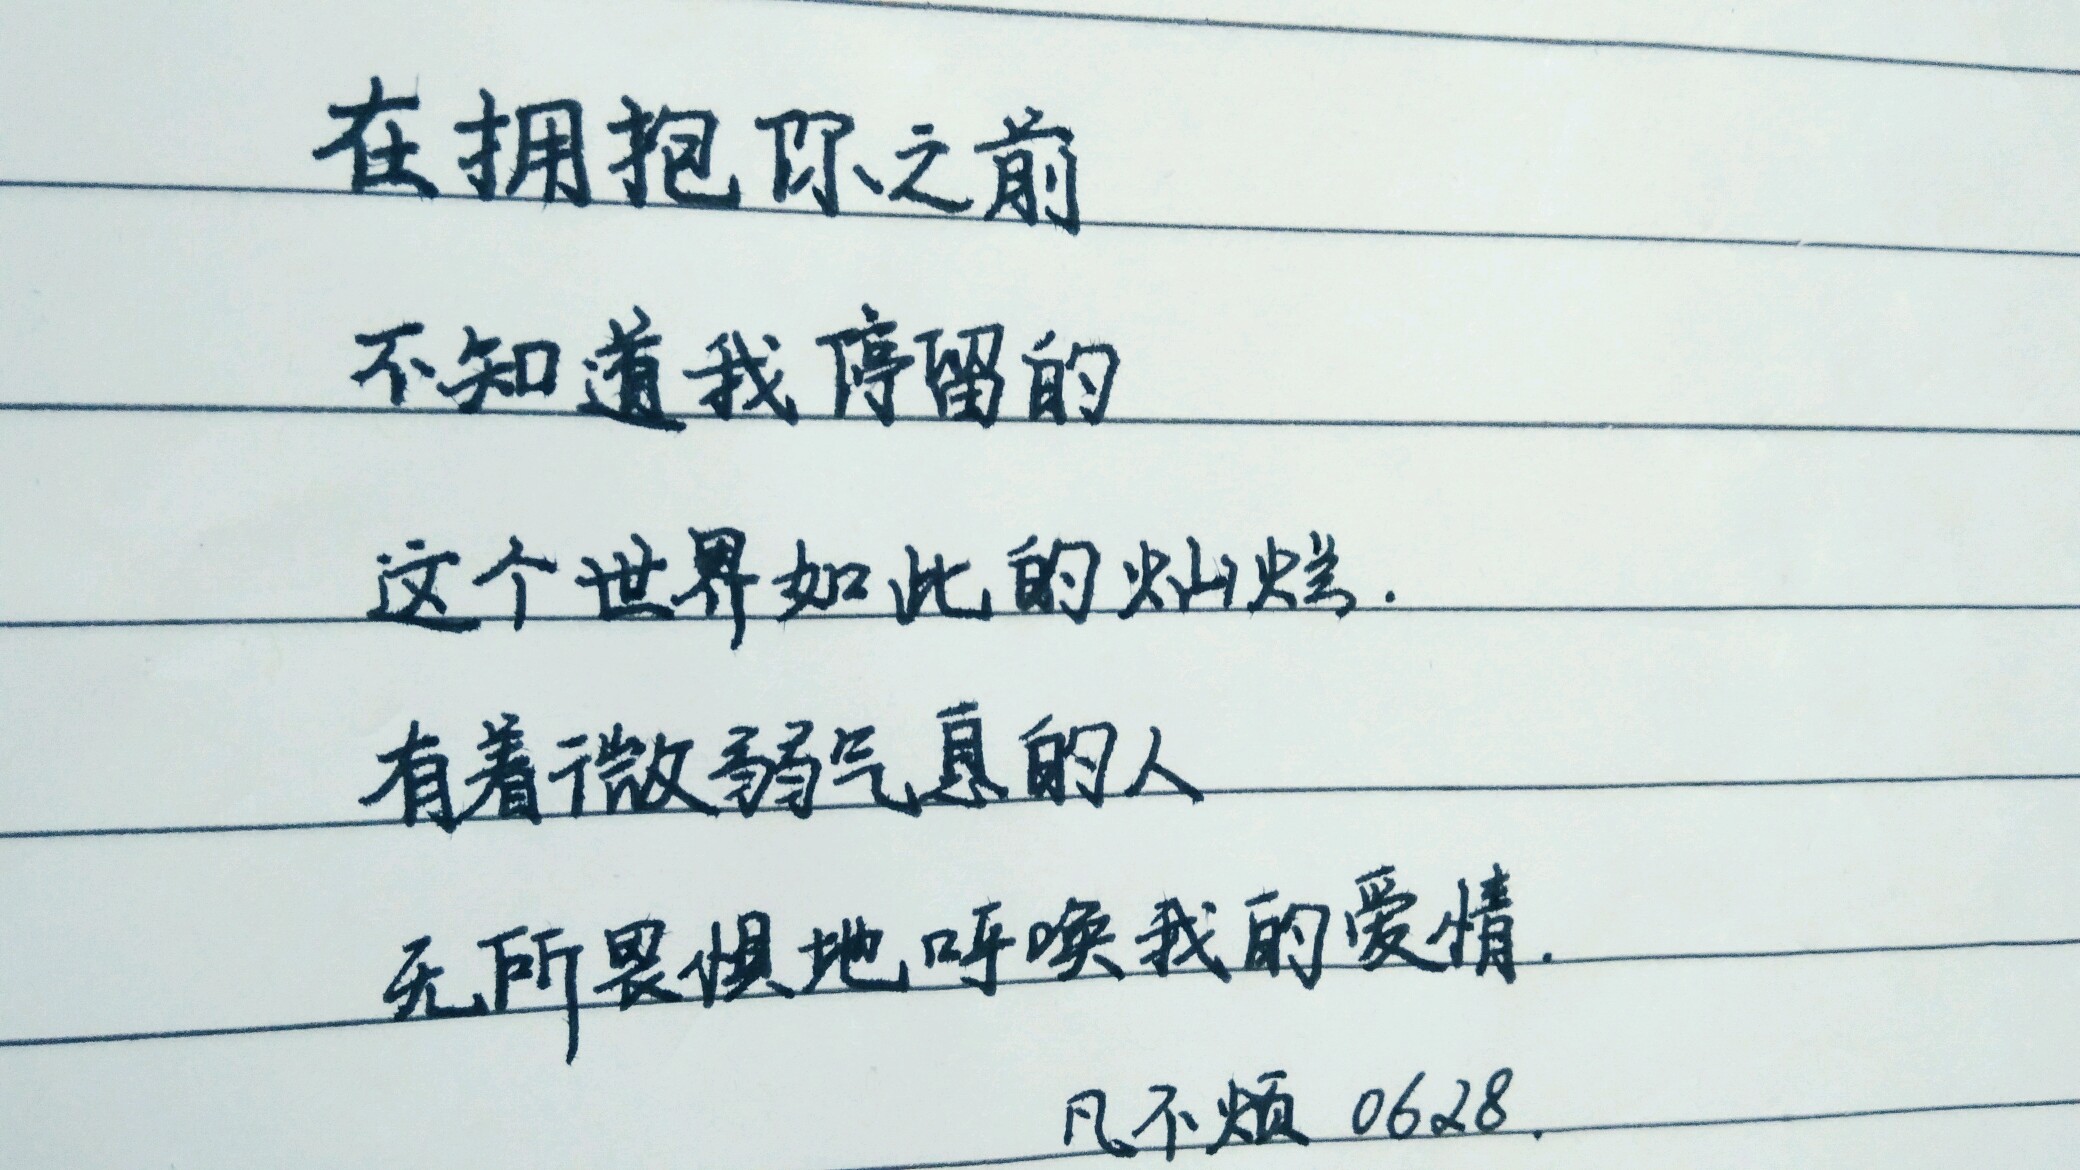 在拥抱你之前
不知道我停留的
这个世界如此的灿烂.
有着微弱气息的人
无所畏惧地呼唤我的爱情.
凡不烦 0628.